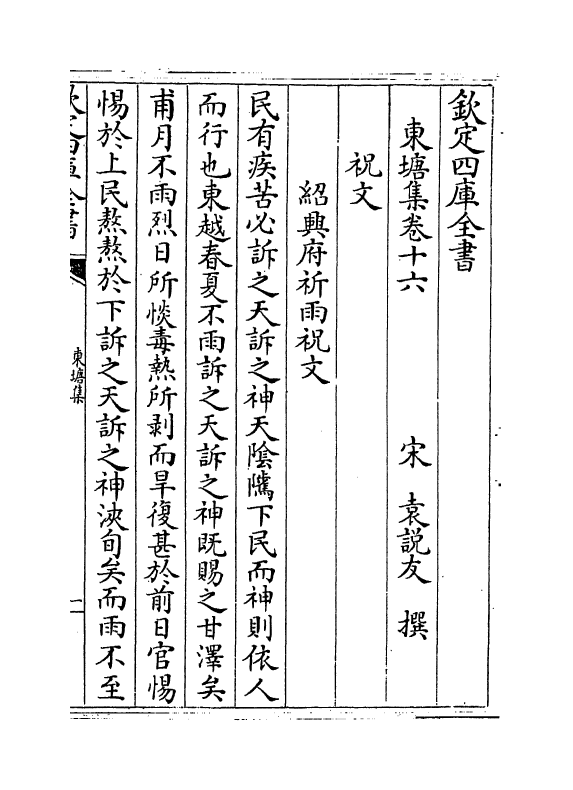 欽定四庫全書
東塘集卷十六
宋 袁說友 撰
祝文
紹興府祈雨祝文
民有疾苦必訴之天訴之神天陰隲下民而神則依人
而行也東越春夏不雨訴之天訴之神既賜之甘澤矣
甫月不雨烈日所惔毒熱所剥而旱復甚於前日官惕
惕於上民熬熬於下訴之天訴之神浹旬矣而雨不至
欽定四庫全書
東塘集
一